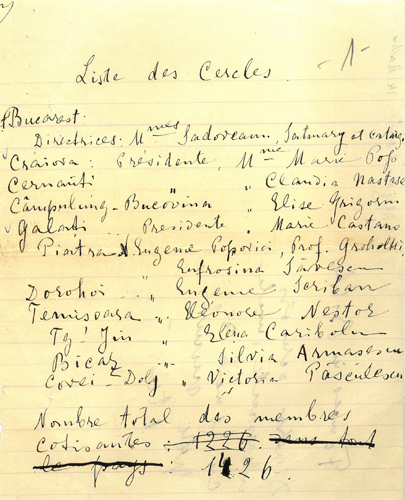 -1-
Liste des Cercles.
Bucarest:
Directrices: Mmes Sadoveanu, Satmary et
Craiova: Présidente, Mme Marie Pop
Cernăuti " " Claudia Nastase
Câmpulung-Bucovina " Elise Grigorin
Galati .. Presidente, Marie Castano
Piatra N Eugenie Popovici, Prof. Groholschi,
Eufrosina Săvescu
Dorohoi .. " Eugenie Scriban
Temisoara " Eléonore Neptor
Tg. Jiu " Elena Caribolu
Bicaz " Silvia Armasescu
Covei-Dolj " Victoria Păsculescu
Nombre total des membres
cotisantes: 1226. dans tout
le pays: 1426.